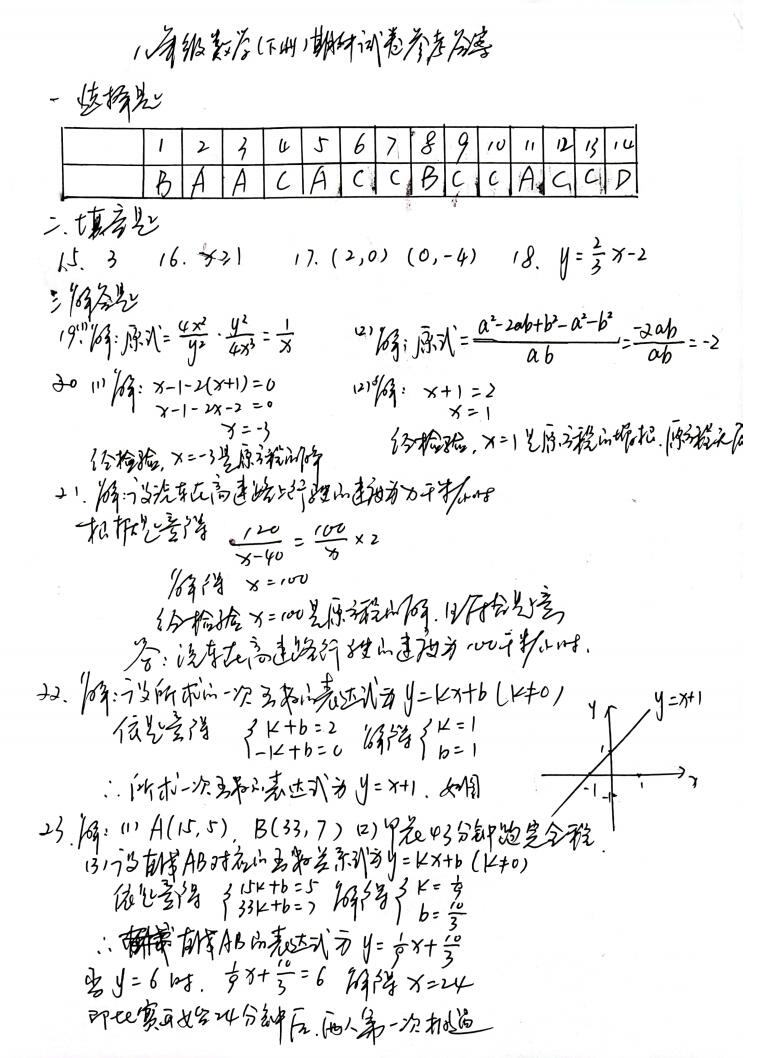 八年级数学(下册)期中试卷参考答案
一 选择题
1 2 3 4 5 6 7 8 9 10 11 12 13 14
B A A C A C C B C C A C C D
二.填空题
15. 3 16. x≥1 17. (2,0) (0,-4) 18. y=\frac{2}{3}x-2
三 解答题
19.(1)解:原式=\frac{4x^2}{y^2}·\frac{y^2}{4x^3}=\frac{1}{x} (2)解:原式=\frac{a^2-2ab+b^2-a^2-b^2}{ab}=\frac{-2ab}{ab}=-2
20 (1)解: x-1-2(x+1)=0 (2)解: x+1=2
x-1-2x-2=0 x=1
x=-3
经检验, x=-3是原方程的解 经检验, x=1是原方程的增根.原方程无
21.解:设汽车在高速路上行驶的速度为x千米/小时
根据题意得 \frac{120}{x-40}=\frac{100}{x}×2
解得 x=100
经检验 x=100是原方程的解.且符合题意
答:汽车在高速路行驶的速度为100千米/小时.
22.解:设所求的一次函数的表达式为 y=kx+b (k≠0)
依题意得 {k+b=2 -k+b=0 解得{k=1 b=1
∴所求一次函数的表达式为 y=x+1. 如图
y y=x+1
1
-1 1 x
-1
23.解:(1) A(15,5), B(33,7) (2)甲花43分钟跑完全程.
(3)设直线AB对应的函数关系式为y=kx+b (k≠0)
依题意得 {15k+b=5 33k+b=7 解得{k=\frac{1}{9} b=\frac{10}{3}
∴直线AB的表达式为 y=\frac{1}{9}x+\frac{10}{3}
当y=6时. \frac{1}{9}x+\frac{10}{3}=6 解得 x=24
即比赛开始24分钟后,两人第一次相遇